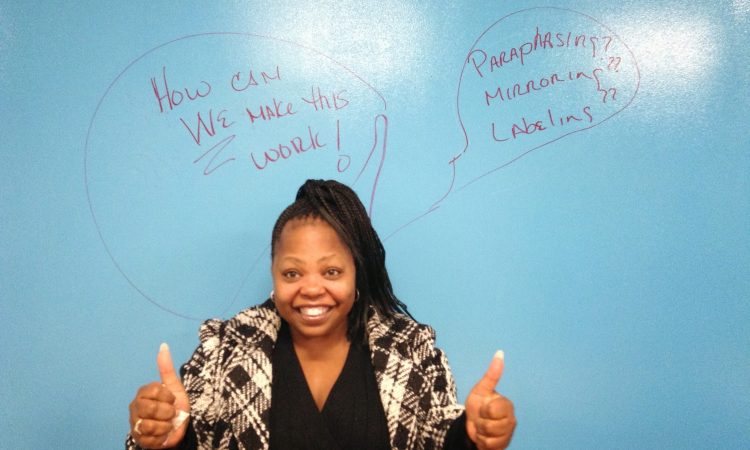 HOW CAN
WE MAKE THIS
WORK!
PARAPHASING??
MIRRORING??
LABELING??